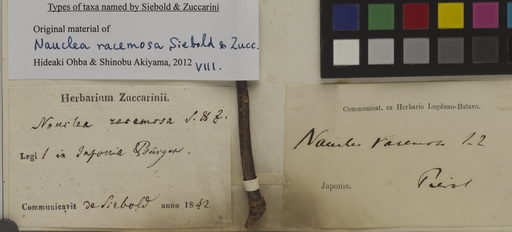 Types of taxa named by Siebold & Zuccarini
Original material of
Nauclea racemosa Siebold & Zucc.
Hideaki Ohba & Shinobu Akiyama, 2012 VIII.
Herbarium Zuccarinii.
Nauclea racemosa S. & Z.
Legi in Japonia Bürger.
Communicavit de Siebold anno 1842
Communicat. ex Herbario Lugduno-Batavo.
Nauclea racemosa
Japonia.